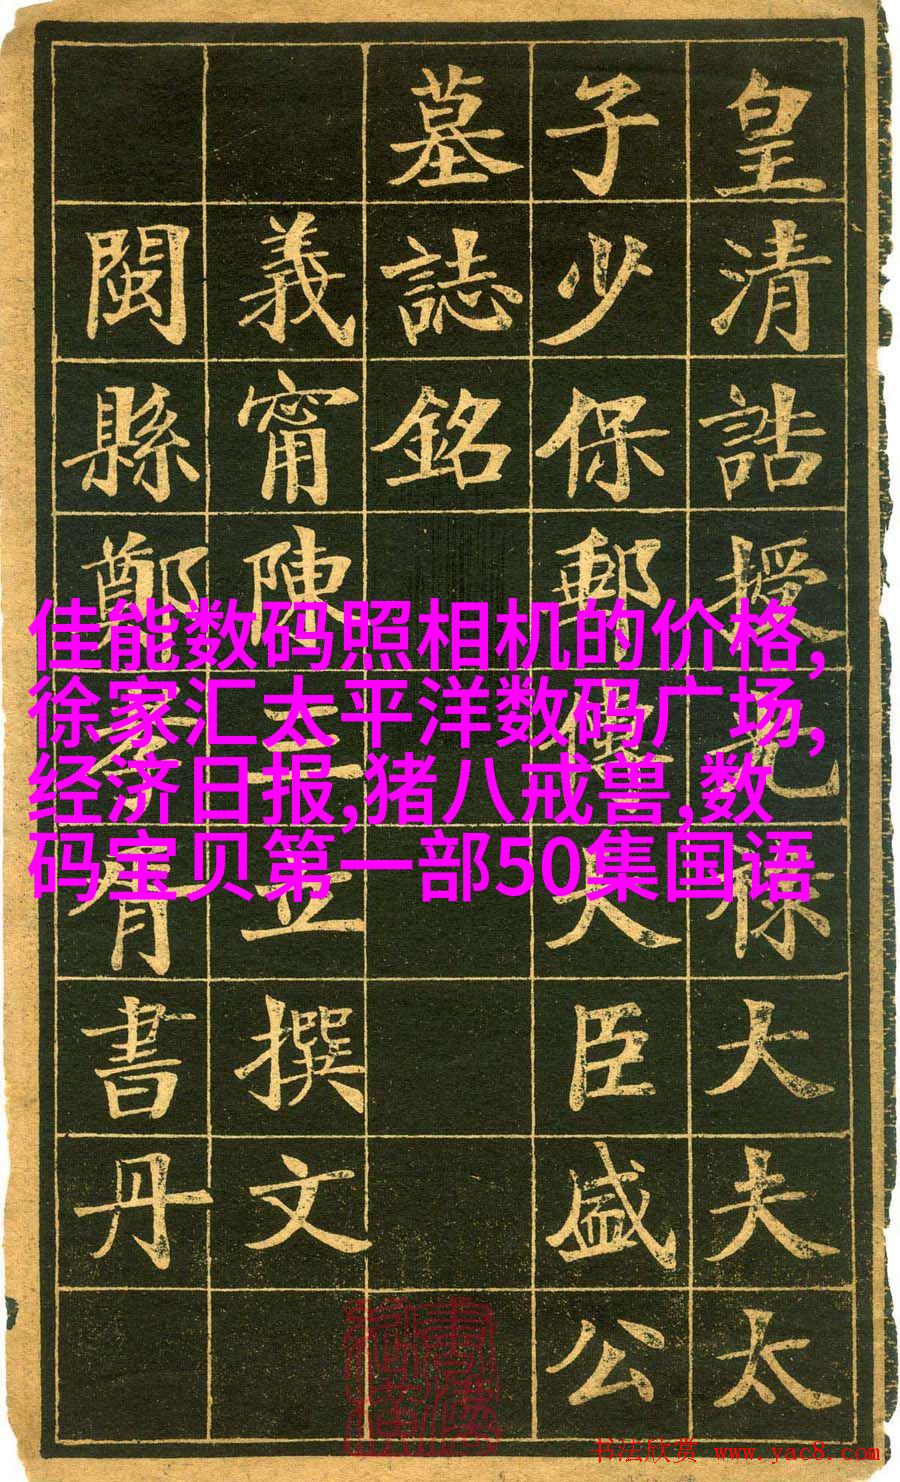 皇清誥授光祿大夫太
子少保郵傳大臣盛公
墓誌銘
義甯陳三立撰文
閩縣鄭孝胥書丹
佳能数码照相机的价格,
徐家汇太平洋数码广场,
经济日报,猪八戒兽,数
码宝贝第一部50集国语
书法欣赏 www.yac8.com